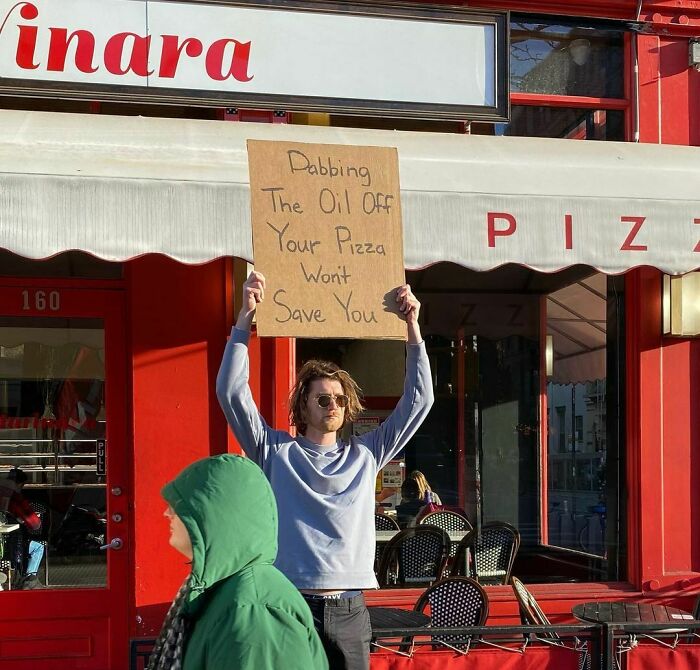 inara
Dabbing
The Oil Off
Your Pizza
Won't
Save You
PIZZ
160
PULL